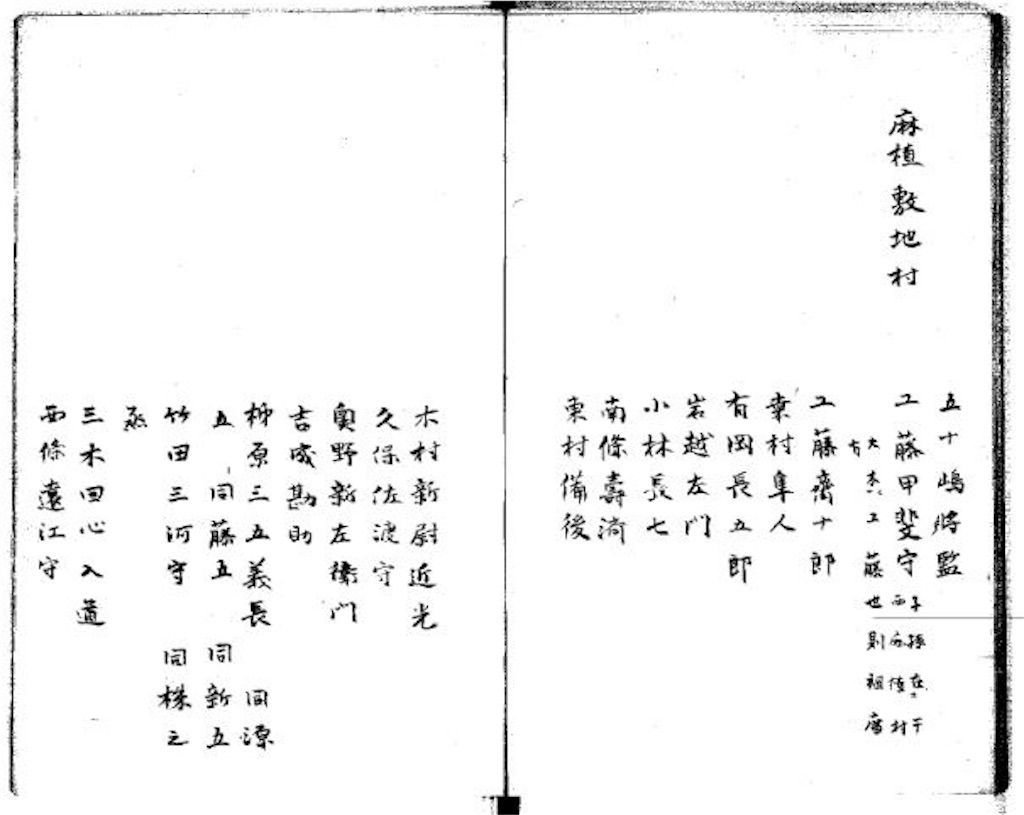 麻植敷地村
五十嶋將監
工藤甲斐守
子孫在于
西麻植村
工藤
也則祖
工藤齊十郎
桒村隼人
有岡長五郎
岩越左門
小林長七
南條壽
東村備後
木村新尉近光
久保佐渡守
奥野新左衛門
吉成勘助
柳原三五義長　同源
五　同藤五　同新五
竹田三河守　同株之
烝
三木回心入道
西條遠江守